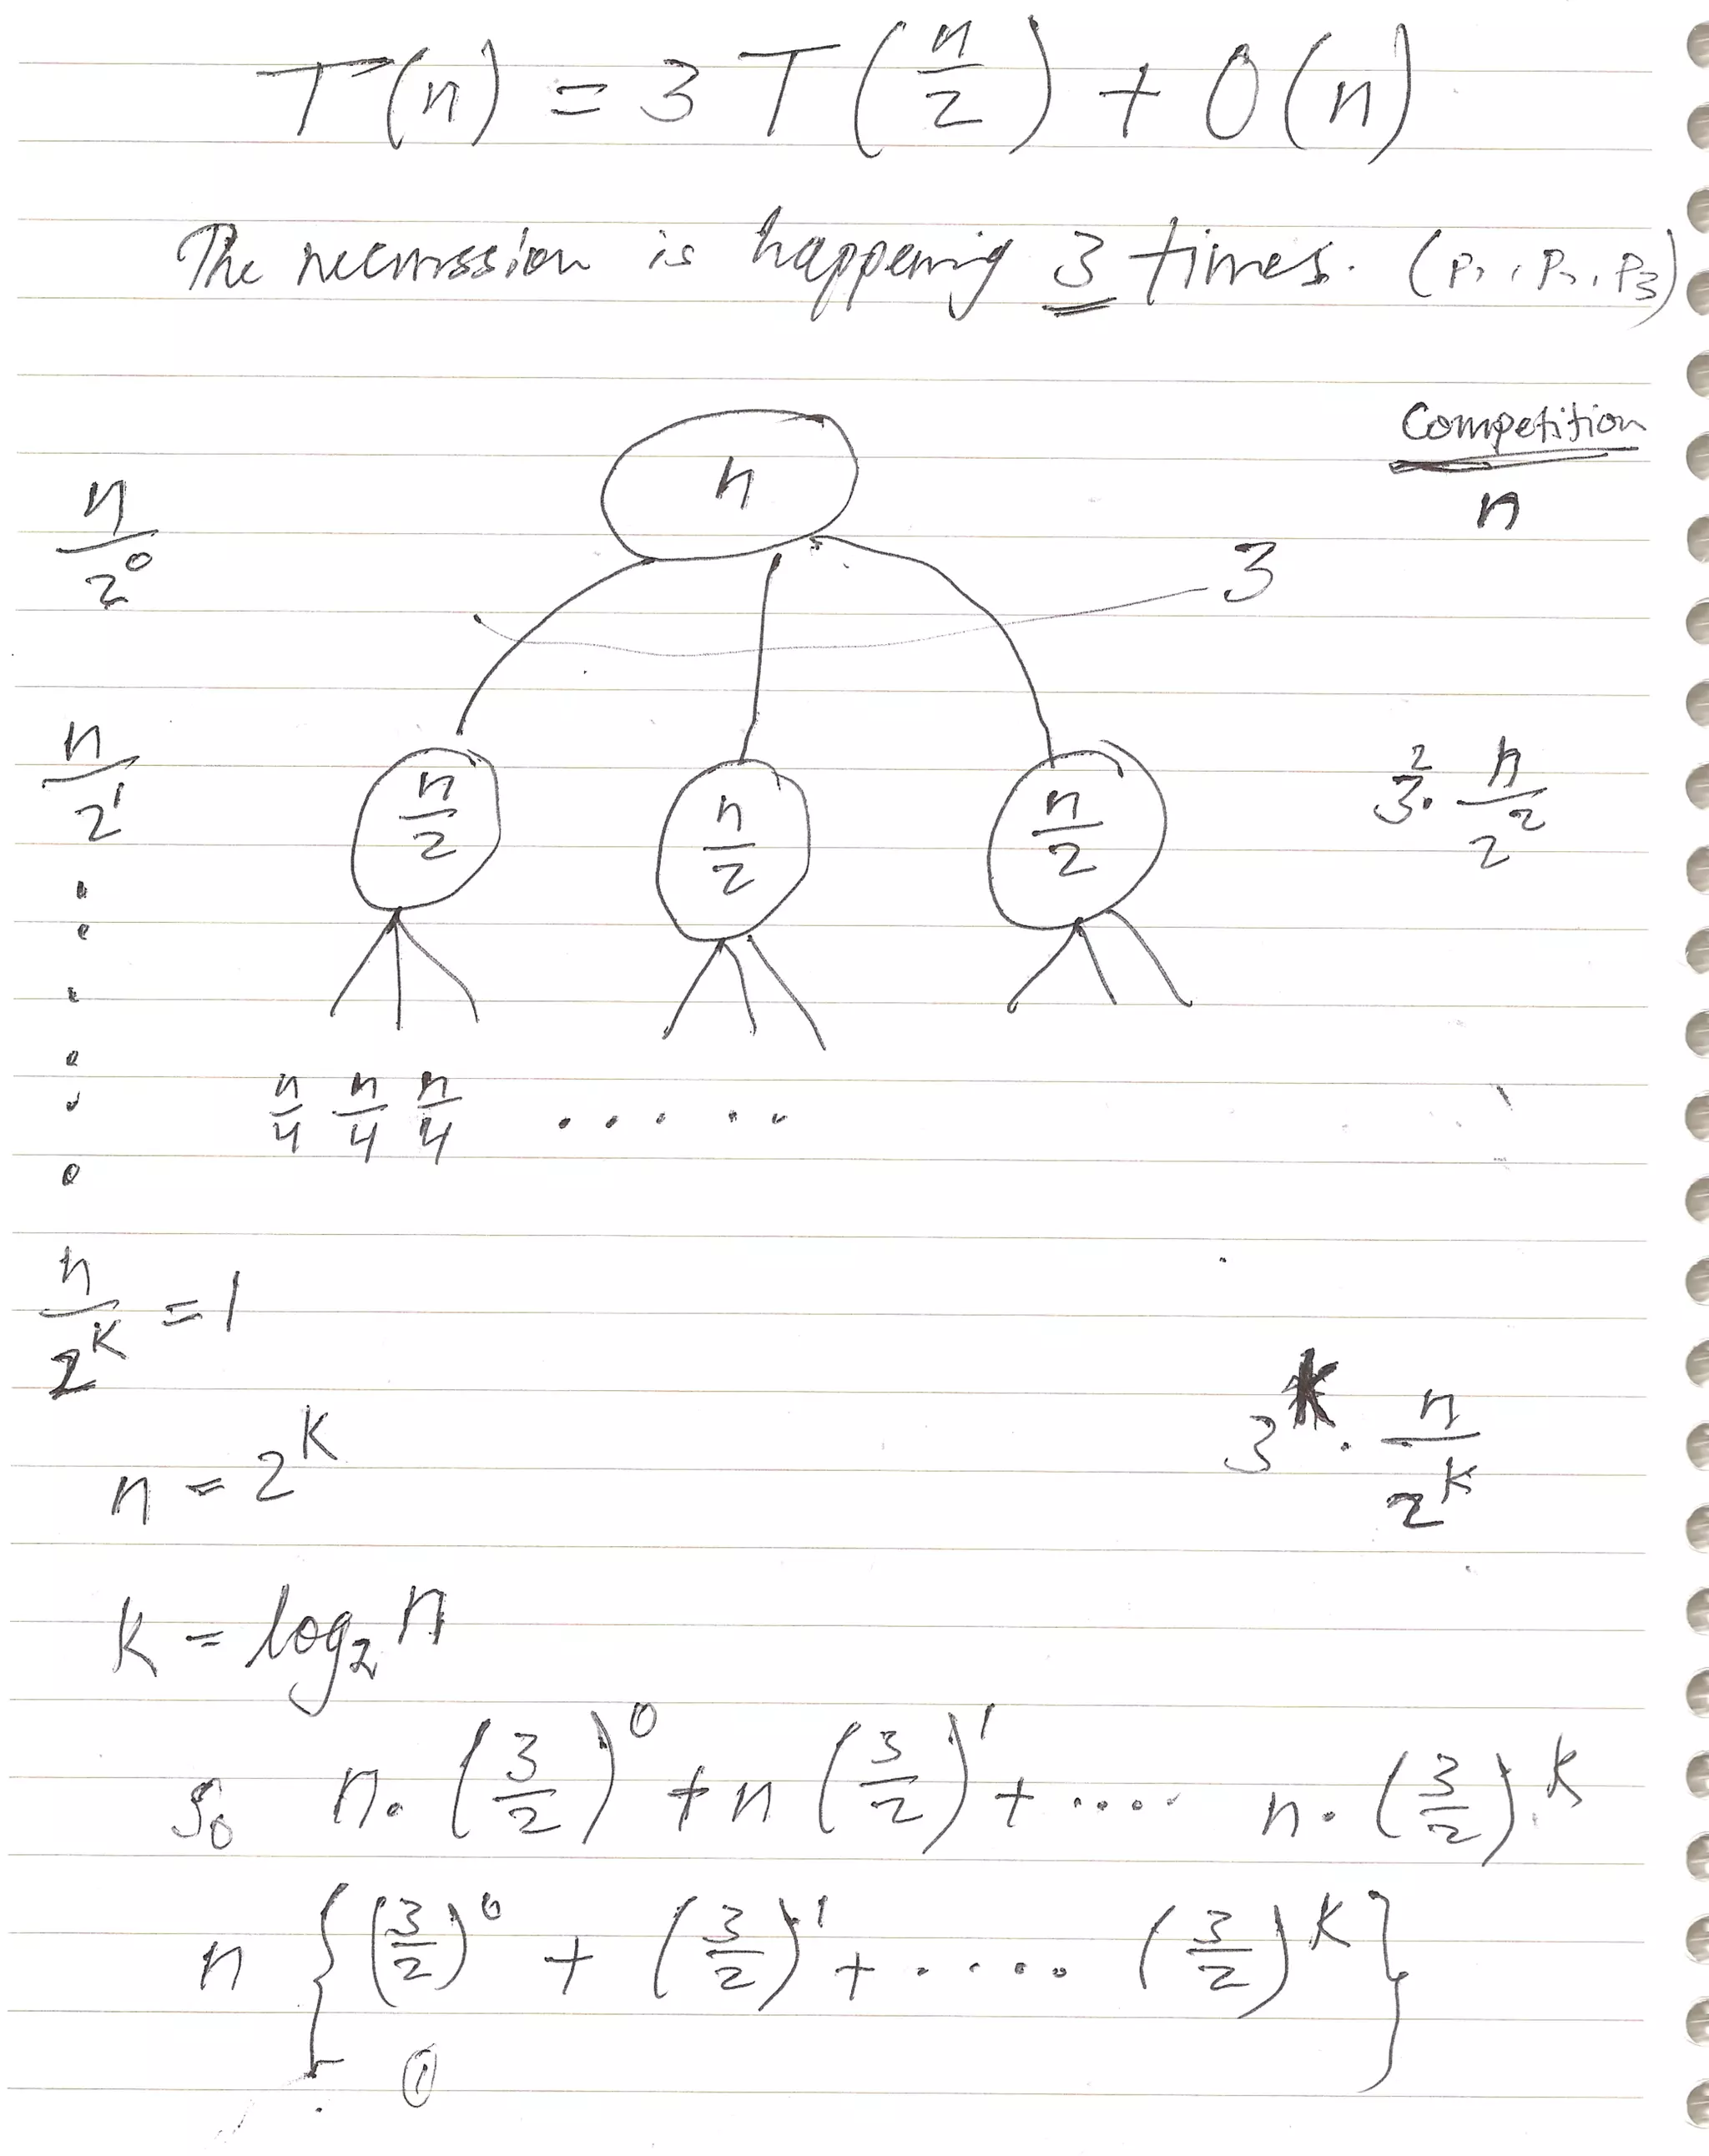 T(n) = 3 T(n/2) + O(n)
The recurssion is happening 3 times. (P1, P2, P3)
Competition
n/2^0 n n
3
n/2^1 n/2 n/2 n/2 3^2 · n/2^2
n/4 n/4 n/4 ......
n/2^K = 1
3^K · n/2^K
n = 2^K
K = log2 n
So n. (3/2)^0 + n (3/2)^1 + .... n. (3/2)^K
n { (3/2)^0 + (3/2)^1 + ..... (3/2)^K }
①